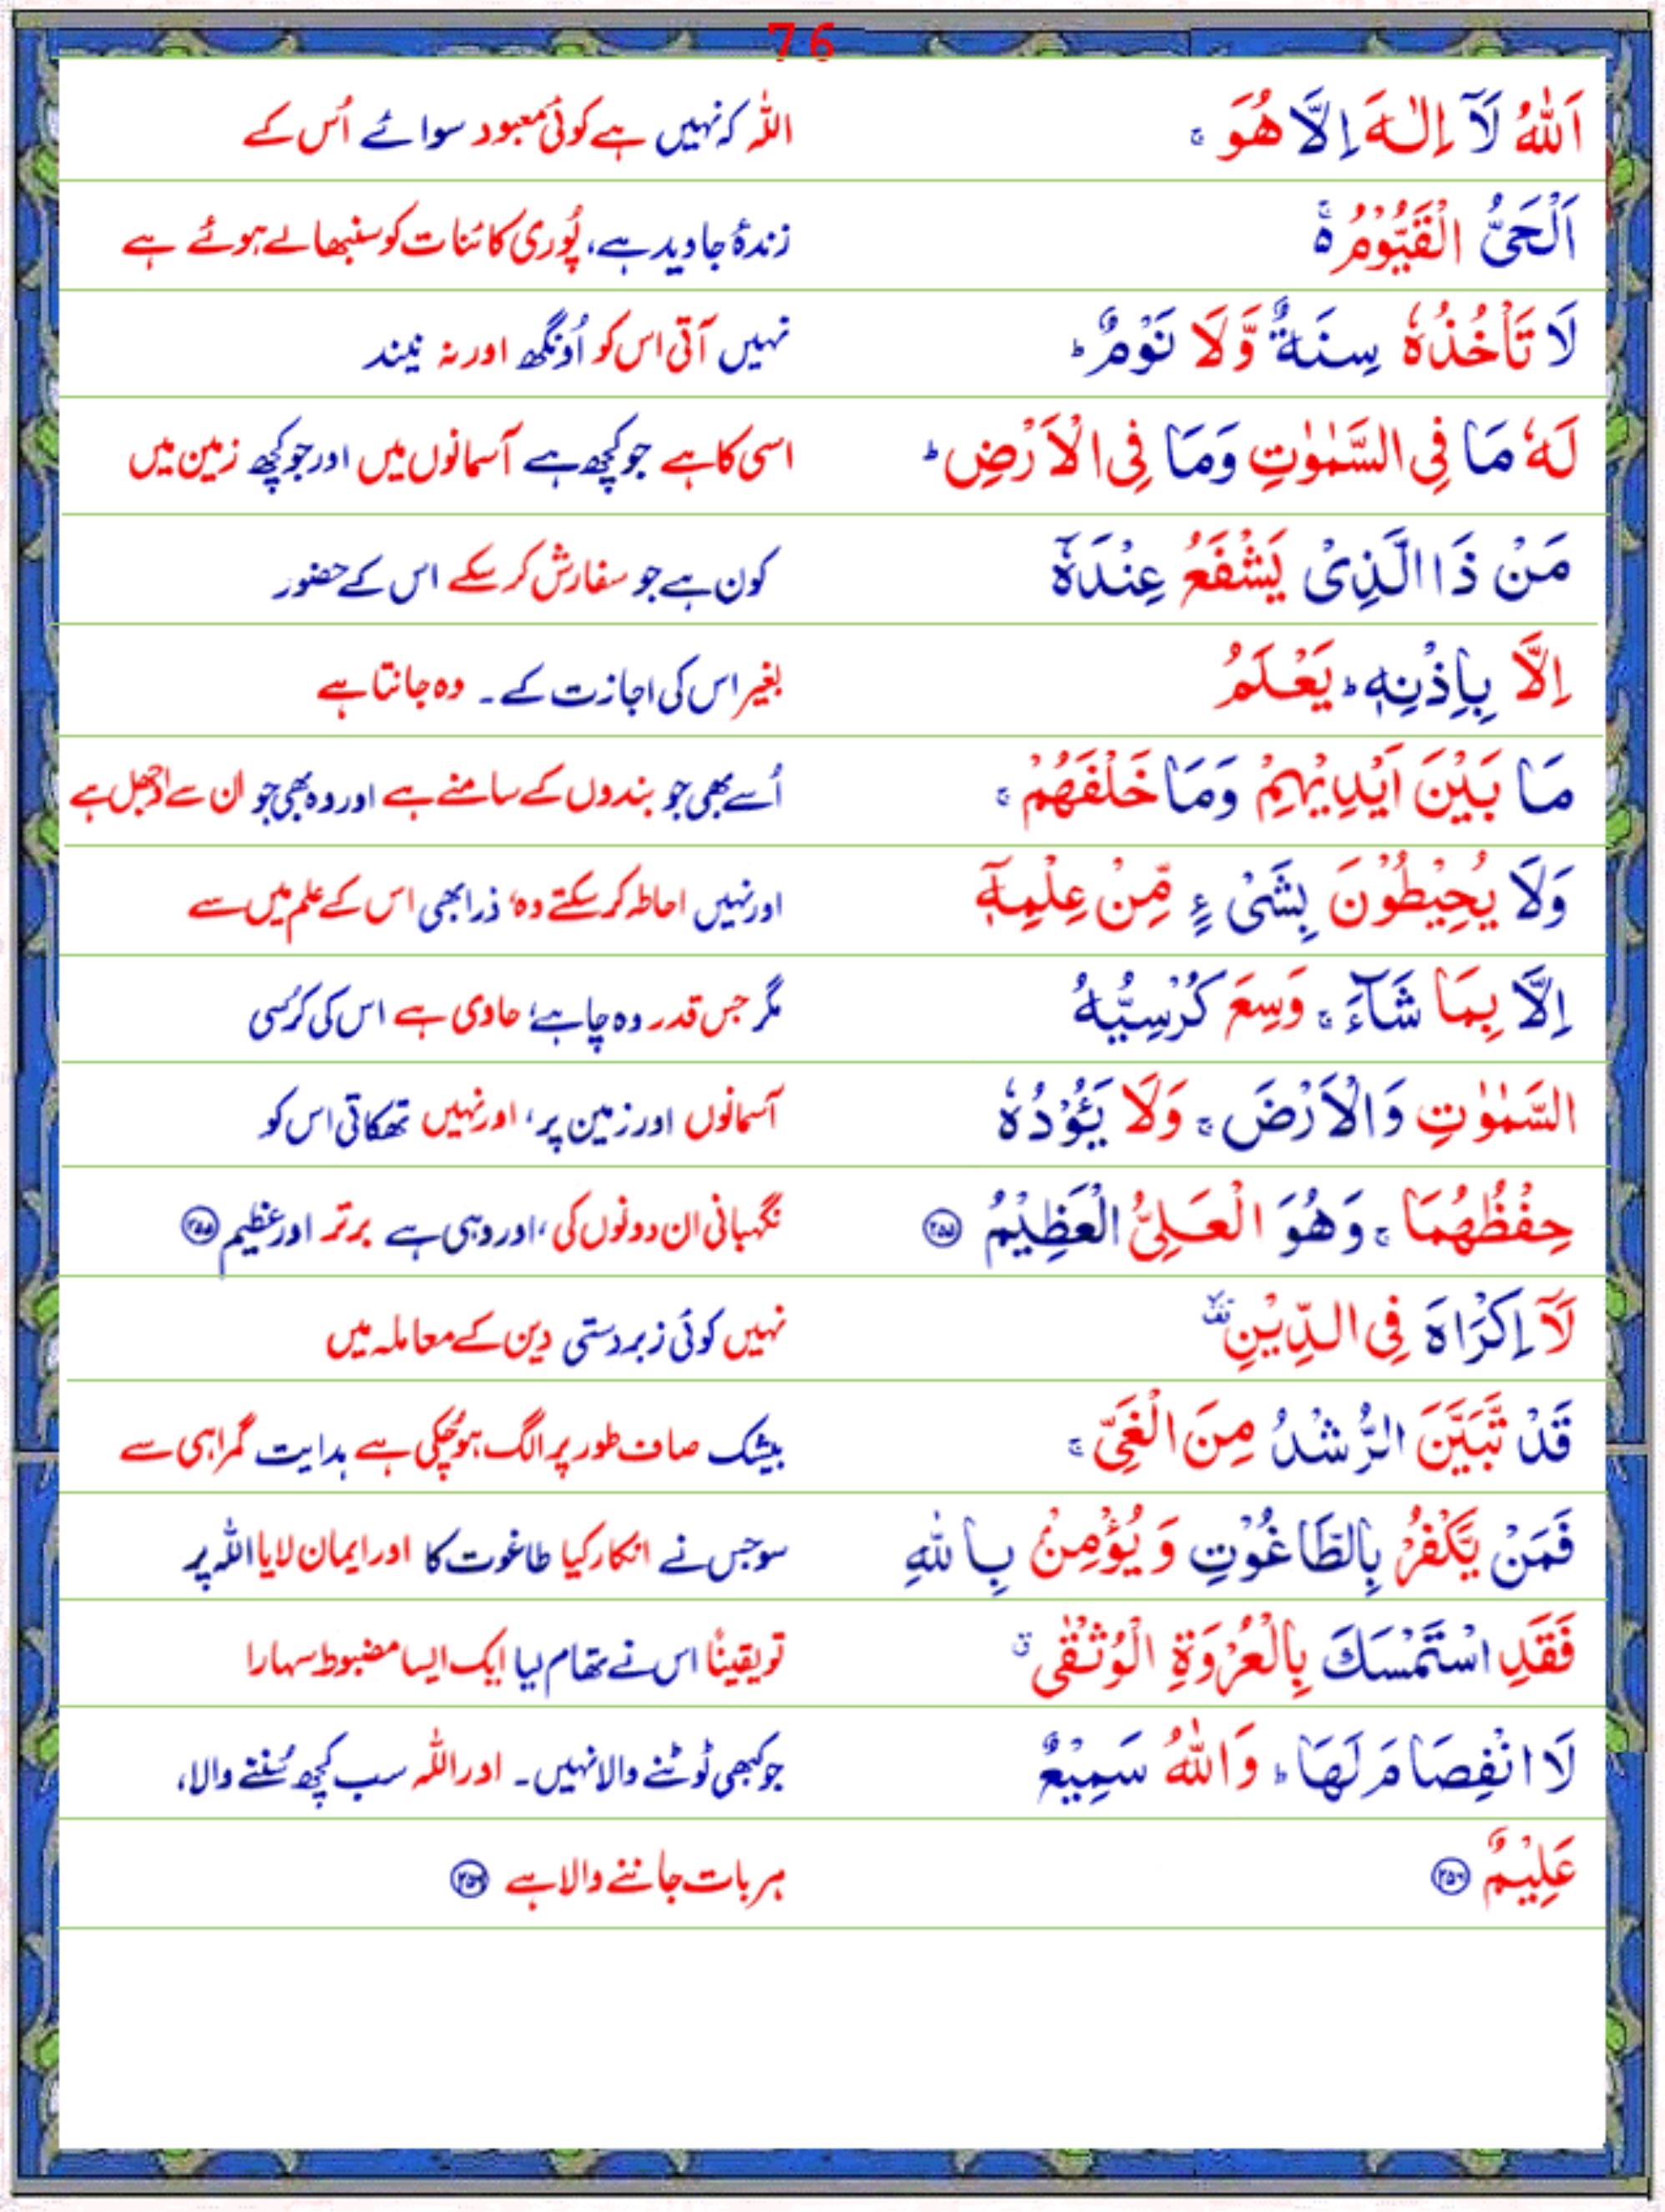 76
اَللّٰهُ لَاۤ اِلٰهَ اِلَّا هُوَ ۚ اللّٰہ کہ نہیں ہے کوئی معبود سوائے اُس کے
اَلْحَیُّ الْقَیُّوْمُ ۬ۚ زندۂ جاوید ہے، پُوری کائنات کو سنبھالے ہوئے ہے
لَا تَاْخُذُهٗ سِنَةٌ وَّلَا نَوْمٌ ؕ نہیں آتی اس کو اُونگھ اور نہ نیند
لَهٗ مَا فِی السَّمٰوٰتِ وَمَا فِی الْاَرْضِ ؕ اسی کا ہے جو کچھ ہے آسمانوں میں اور جو کچھ زمین میں
مَنْ ذَا الَّذِیْ یَشْفَعُ عِنْدَهٗۤ کون ہے جو سفارش کر سکے اس کے حضور
اِلَّا بِاِذْنِهٖ ؕ یَعْلَمُ بغیر اس کی اجازت کے۔ وہ جانتا ہے
مَا بَیْنَ اَیْدِیْهِمْ وَمَا خَلْفَهُمْ ۚ اُسے بھی جو بندوں کے سامنے ہے اور وہ بھی جو ان سے اوجھل ہے
وَلَا یُحِیْطُوْنَ بِشَیْءٍ مِّنْ عِلْمِهٖۤ اور نہیں احاطہ کر سکتے وہ، ذرا بھی اس کے علم میں سے
اِلَّا بِمَا شَآءَ ۚ وَسِعَ كُرْسِیُّهُ مگر جس قدر وہ چاہے، حاوی ہے اس کی کرُسی
السَّمٰوٰتِ وَالْاَرْضَ ۚ وَلَا یَـُٔوْدُهٗ آسمانوں اور زمین پر، اور نہیں تھکاتی اس کو
حِفْظُهُمَا ۚ وَهُوَ الْعَلِیُّ الْعَظِیْمُ ۲۵۵ نگہبانی ان دونوں کی، اور وہی ہے برتر اور عظیم ۲۵۵
لَاۤ اِكْرَاهَ فِی الدِّیْنِ ۙ۫ نہیں کوئی زبردستی دین کے معاملہ میں
قَدْ تَّبَیَّنَ الرُّشْدُ مِنَ الْغَیِّ ۚ بیشک صاف طور پر الگ ہو چُکی ہے ہدایت گمراہی سے
فَمَنْ یَّكْفُرْ بِالطَّاغُوْتِ وَیُؤْمِنْۢ بِاللّٰهِ سو جس نے انکار کیا طاغوت کا اور ایمان لایا اللّٰہ پر
فَقَدِ اسْتَمْسَكَ بِالْعُرْوَةِ الْوُثْقٰی ۗ تو یقیناً اس نے تھام لیا ایک ایسا مضبوط سہارا
لَا انْفِصَامَ لَهَا ؕ وَاللّٰهُ سَمِیْعٌ جو کبھی ٹوٹنے والا نہیں۔ اور اللّٰہ سب کچھ سُننے والا،
عَلِیْمٌ ۲۵۶ ہر بات جاننے والا ہے ۲۵۶